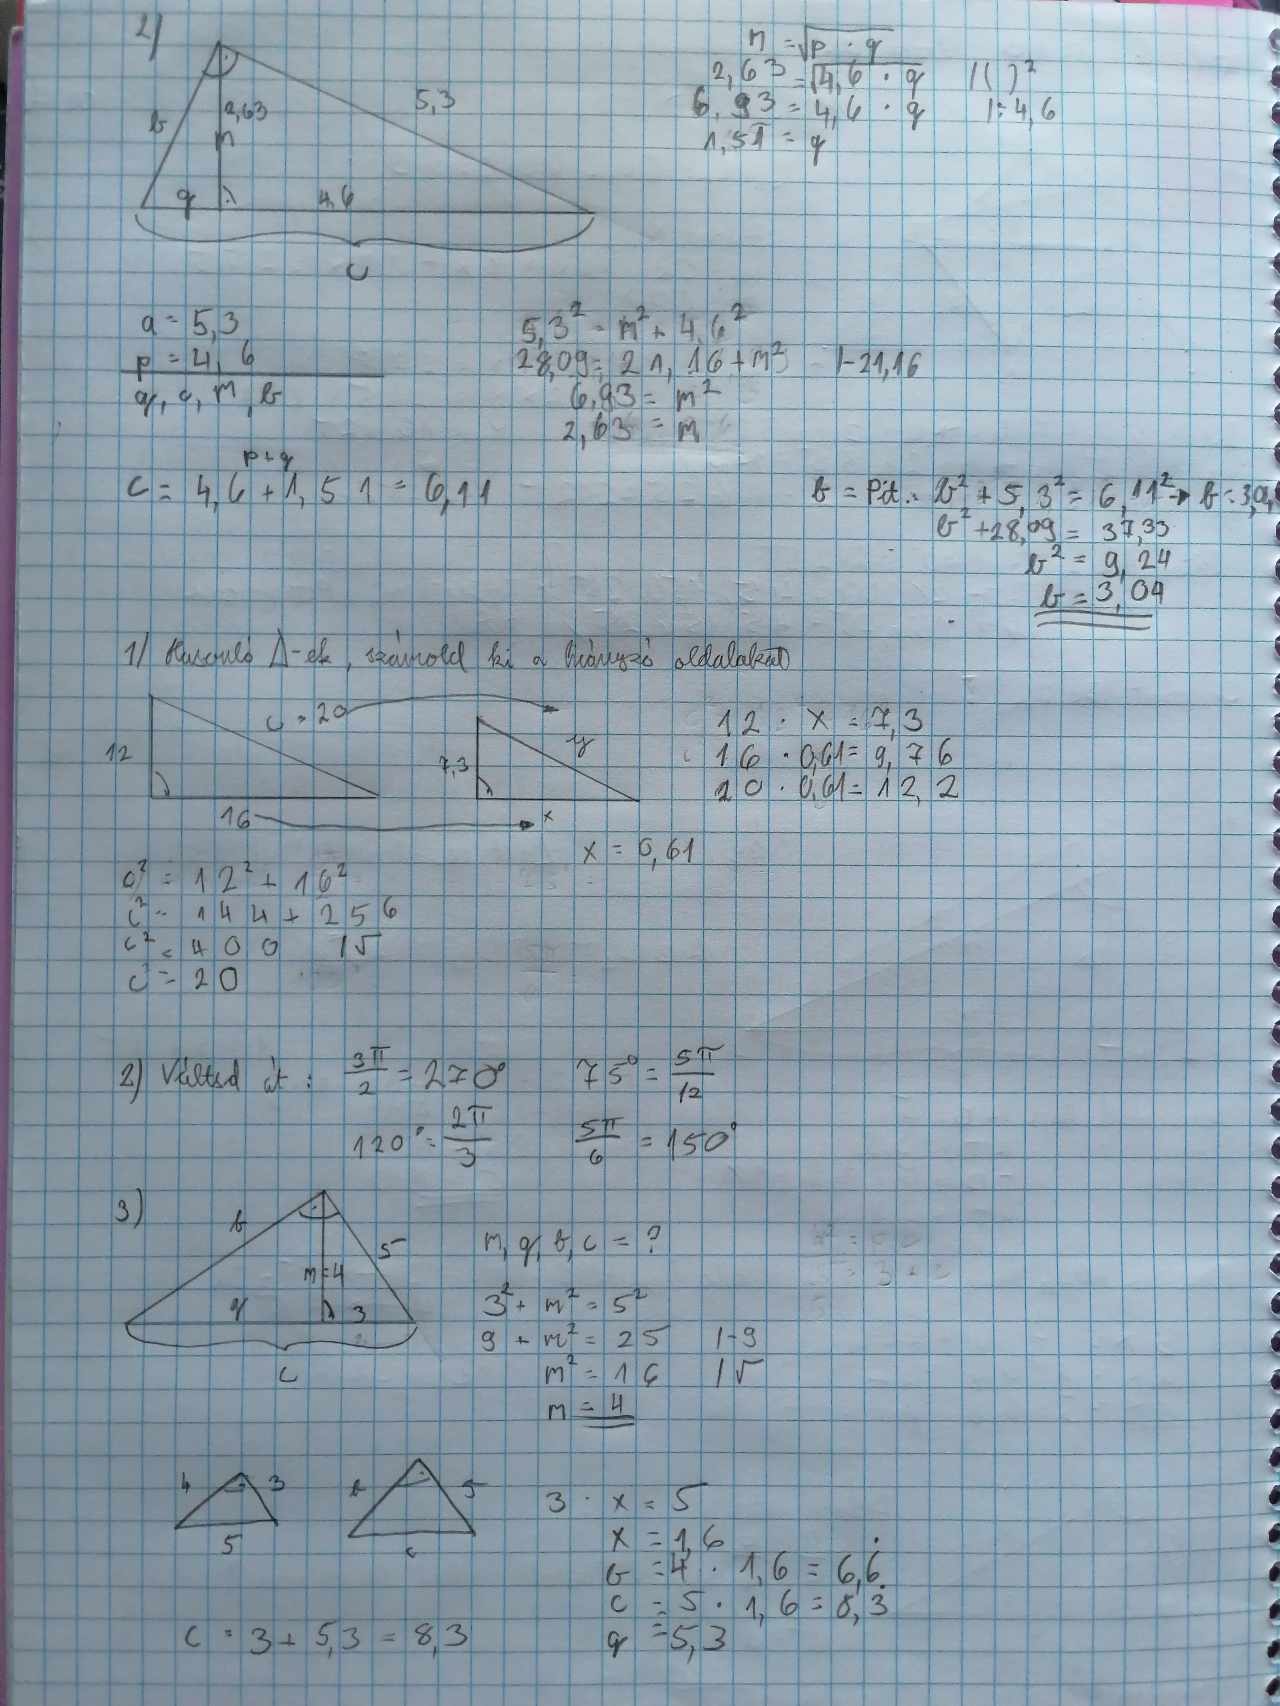 2)
m = √p · q
2,63 = √4,6 · q /( )²
6,93 = 4,6 · q /: 4,6
1,51 = q
b
2,63
m
5,3
q
4,6
c
a = 5,3
p = 4,6
q, c, m, b
5,3² = m² + 4,6²
28,09 = 21,16 + m² /-21,16
6,93 = m²
2,63 = m
p+q
c = 4,6 + 1,51 = 6,11
b = Pit.: b² + 5,3² = 6,11² → b = 3,0
b² + 28,09 = 37,33
b² = 9,24
b = 3,04
1) Hasonló Δ-ek, számold ki a hiányzó oldalakat
12
c = 20
16
7,3
y
x
12 · x = 7,3
16 · 0,61 = 9,76
20 · 0,61 = 12,2
x = 0,61
c² = 12² + 16²
c² = 144 + 256
c² = 400 /√
c² = 20
2) Váltsd át: 3π/2 = 270° 75° = 5π/12
120° = 2π/3 5π/6 = 150°
3)
b
5
m=4
q
3
c
m, q, b, c = ?
3² + m² = 5²
9 + m² = 25 /-9
m² = 16 /√
m = 4
4
3
5
b
5
c
3 · x = 5
x = 1,6
b = 4 · 1,6 = 6,6̇
c = 5 · 1,6 = 8,3̇
q = 5,3
c = 3 + 5,3 = 8,3